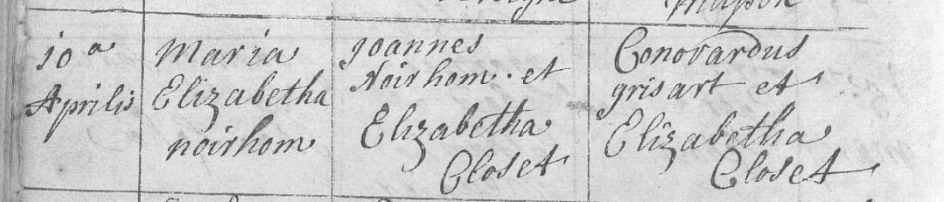 10a
Aprilis
Maria
Elizabetha
noirhom
Joannes
Noirhom. et
Elizabetha
Closet
Conorardus
grisart et
Elizabetha
Closet